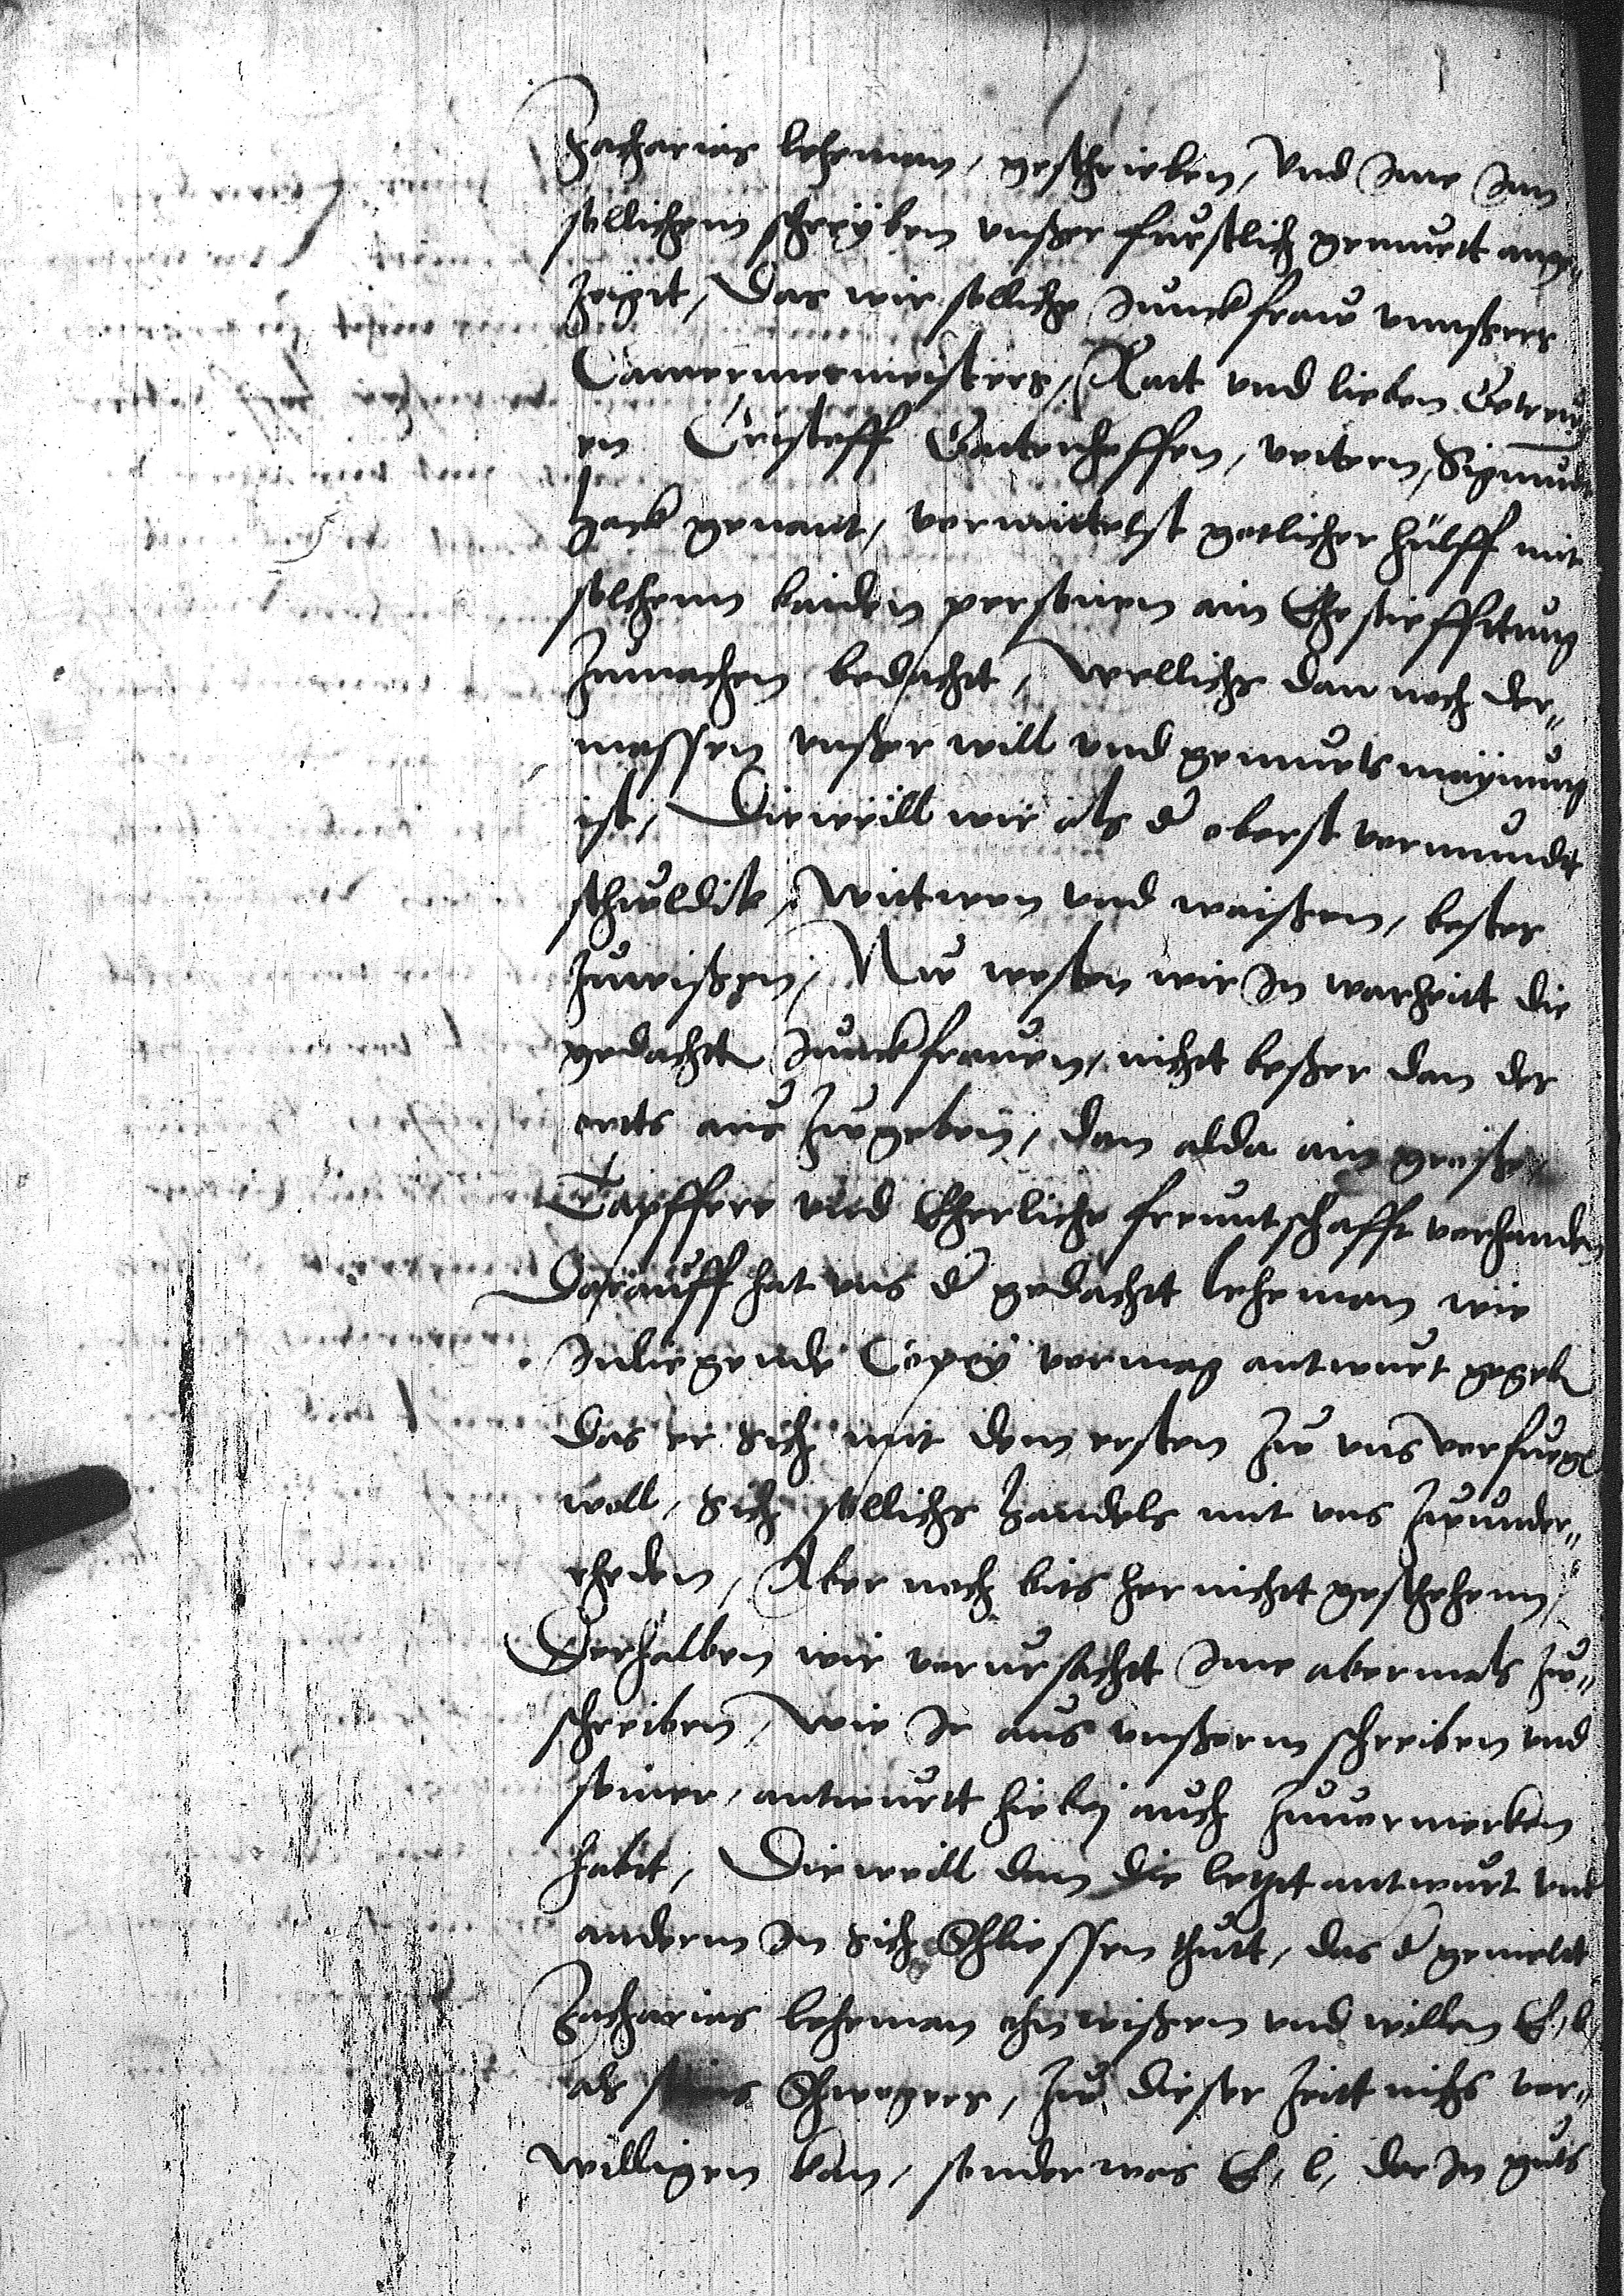 Zacharias leheman, geschrieben, Vnd Jme Jnn
sollichem schreÿben vnßer furstlich gemuett ange„
zeigt, Das wir solliche Junckfraw vnnßers
Camermeisters, Rart vnd lieben Getreü„
en Cristoff Gattenhoffen, vettern, Sigmund
hack genant, vermittelst gotlicher hülff mit
solchenn baiden personen ain Ehestiefftung
Zumachen bedacht, Wellichs dan noch der„
massen vnßer will vnd gemuets maÿnung
ist, Dieweill wir als d oberst vermundt
schuldik, Witwen vnd waißen, bester
Zuweißen, Nu westen wir Jn warheitt die
gedacht Junckfrauen, nicht beßer dan der
orts aus Zugeben, dan alda ain große
Tapffere vnd Eherliche freuntschafft vorhanden
Darauff hat vns d gedacht leheman wie
Jnliegende Copeÿ vermag antwurt gegebn
das er sich mit dem ersten Zu vns verfuegn
woll, sich sollichs handels mit vns Zuunder„
rheden, Aber noch bits her nicht geschehenn,
Derhalben wir verursacht Jme abermals Zu„
schreiben, Wie Jr aus vnßerm schreiben vnd
seiner, antwurtt hiebej auch Zuuermerken
habt, Dieweill dan die letzt antwurt vnd
anderm Jn sich Schliessen thutt, das d gemelt
Zacharias leheman ohn wißen vnd willen E, l,
als seins Schwagers, Zu dießer Zeitt nichs ver„
willigen kan, sonder was E, l, der Jn guts